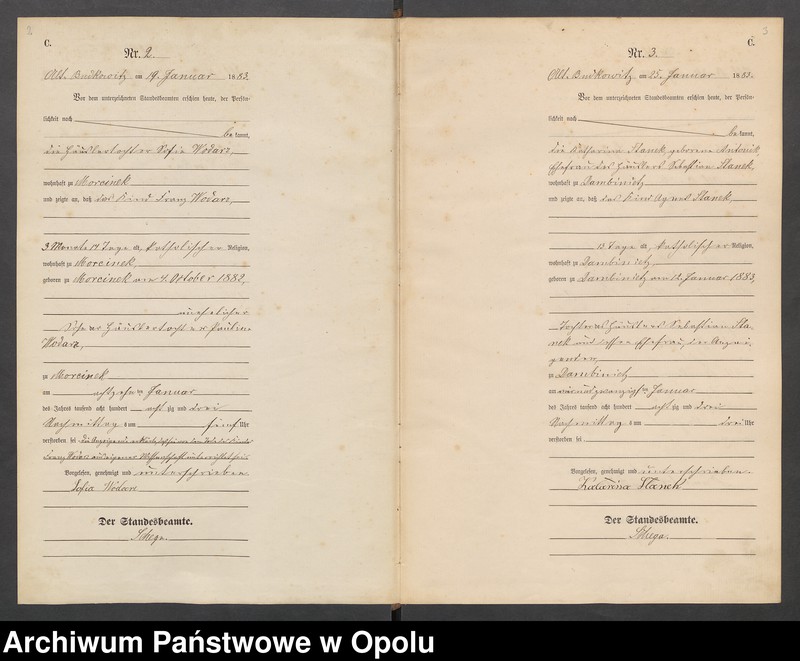 2
C.
Nr. 2.
Alt. Budkowitz am 19. Januar 1883.
Vor dem unterzeichneten Standesbeamten erschien heute, der Persön-
lichkeit nach
be kannt,
die Häuslertochter Sofia Wodarz,
wohnhaft zu Morcinek
und zeigte an, daß das Kind Franz Wodarz,
3 Monate 14 Tage alt, katholischer Religion,
wohnhaft zu Morcinek
geboren zu Morcinek am 4. Oktober 1882,
unehelicher
Sohn der Häuslertochter Pauline
Wodarz,
zu Morcinek
am achtzehnten Januar
des Jahres tausend acht hundert achtzig und drei
Nachmittags um fünf Uhr
verstorben sei
Die Anzeigende erklärte, daß sie von dem Tode des Kindes
Franz Wodarz aus eigener Wissenschaft unterrichtet sei.
Vorgelesen, genehmigt und unterschrieben
Sofia Wodarz
Der Standesbeamte.
3
C.
Nr. 3.
Alt. Budkowitz am 25. Januar 1883.
Vor dem unterzeichneten Standesbeamten erschien heute, der Persön-
lichkeit nach
be kannt,
die Katharina Stanek, geborene Antonik,
Ehefrau des Häuslers Sebastian Stanek,
wohnhaft zu Dambinietz
und zeigte an, daß das Kind Agnes Stanek,
13 Tage alt, katholischer Religion,
wohnhaft zu Dambinietz,
geboren zu Dambinietz am 12. Januar 1883,
Tochter des Häuslers Sebastian Sta-
nek und dessen Ehefrau, der Anzei-
genden
zu Dambinietz
am vierundzwanzigsten Januar
des Jahres tausend acht hundert achtzig und drei
Nachmittags um drei Uhr
verstorben sei
Vorgelesen, genehmigt und unterschrieben.
Katarina Stanek
Der Standesbeamte.
Archiwum Państwowe w Opolu